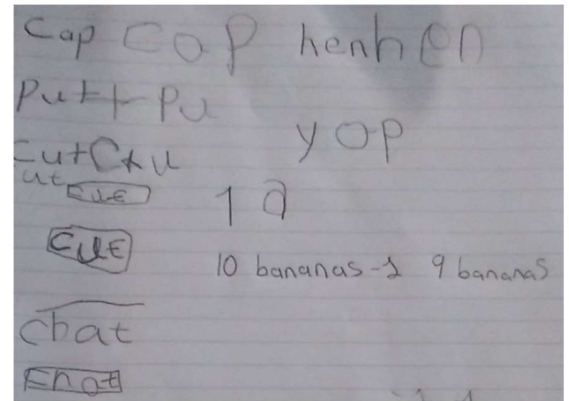 cap cop henhen
put t pu
yop
cut ctu
ut cue
1 a
cue
10 bananas-1 9 bananas
chat